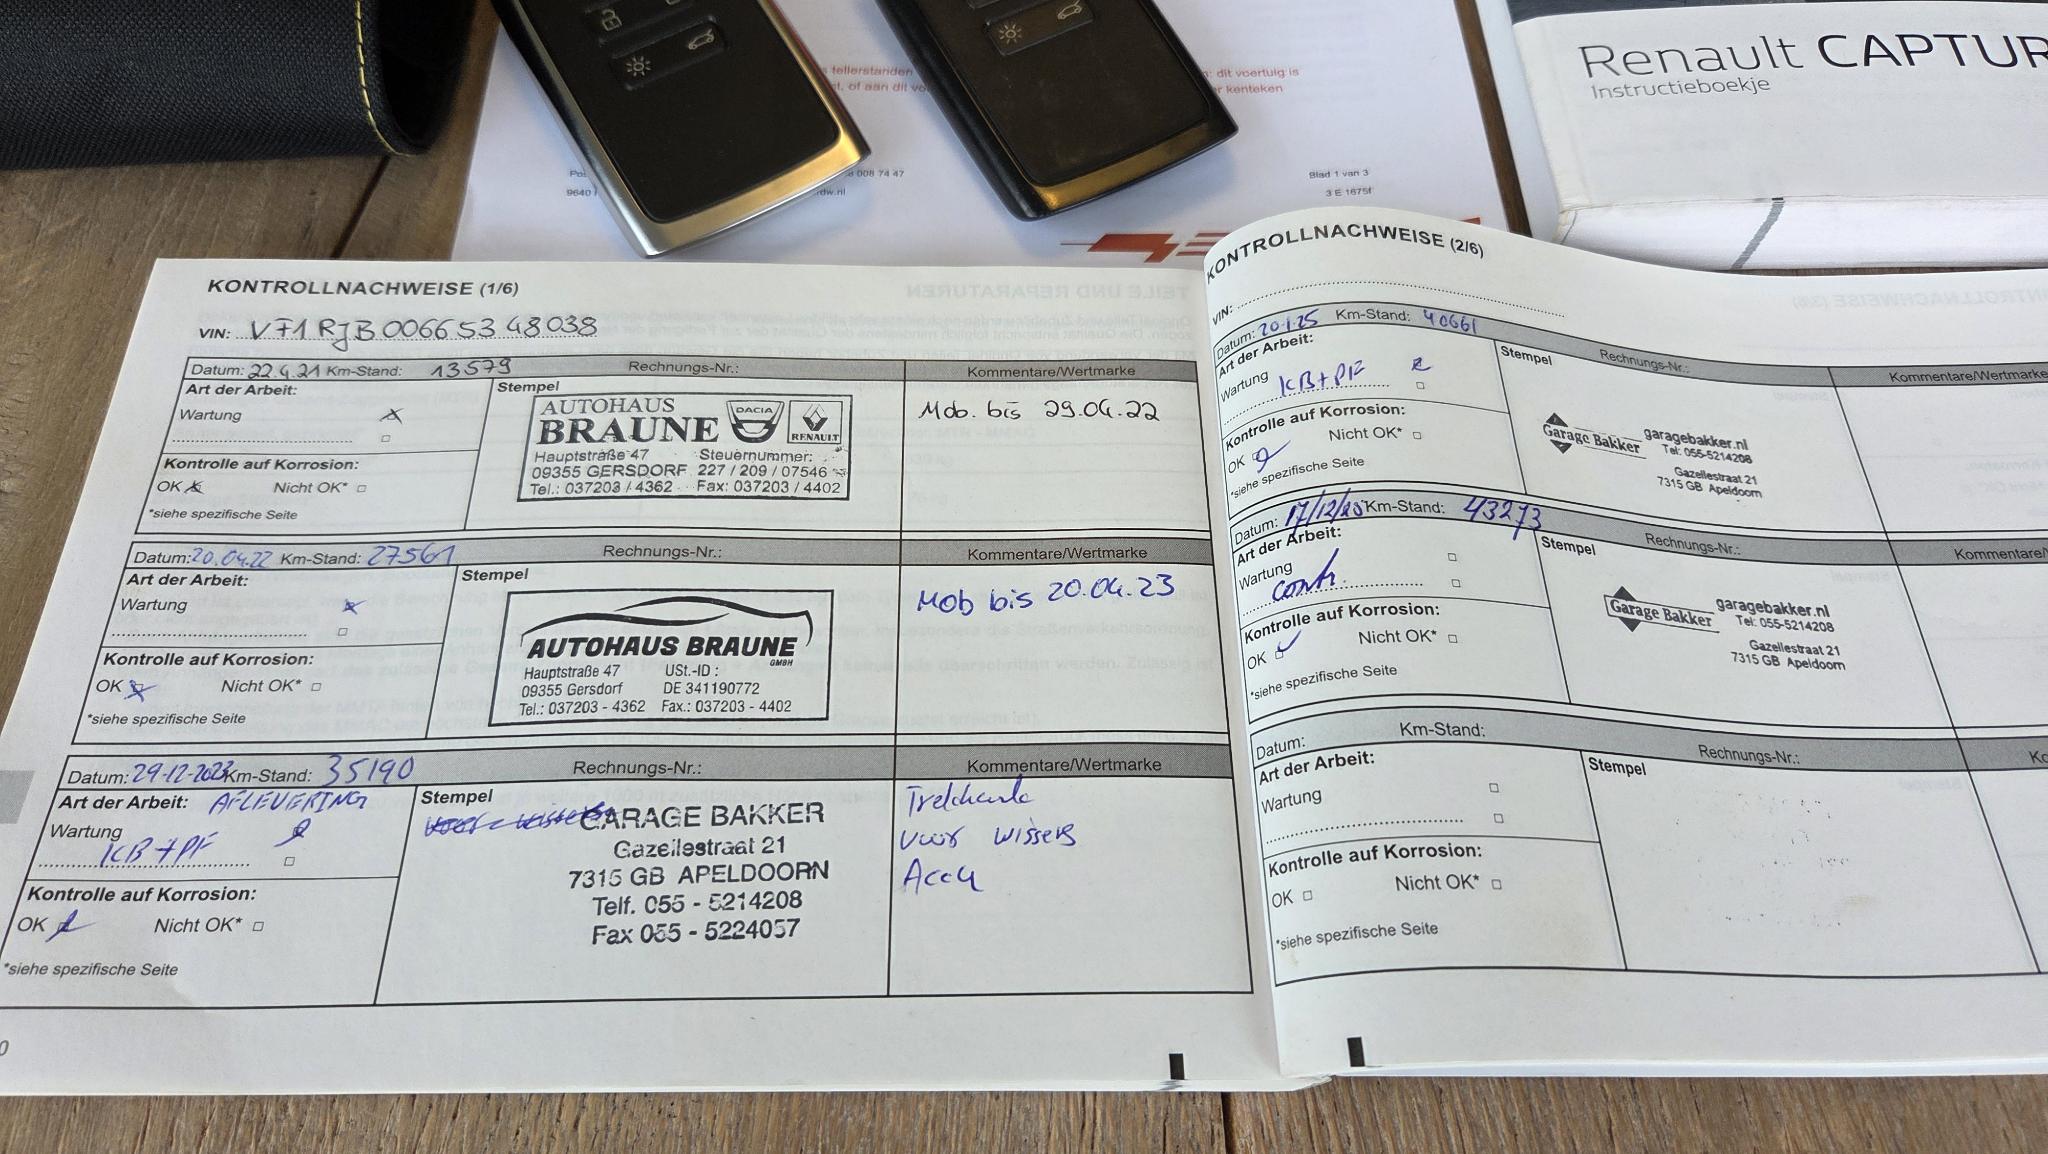 Renault CAPTUR
Instructieboekje
tellerstanden
: dit voertuig is
, of aan dit
kenteken
008 74 47
9640
rdw.nl
Blad 1 van 3
3 E 1675f
KONTROLLNACHWEISE (1/6)
VIN: VF1RJB00665348038
Datum: 22.4.21 Km-Stand: 13579 Rechnungs-Nr.: Kommentare/Wertmarke
Art der Arbeit:
Wartung
Kontrolle auf Korrosion:
OK Nicht OK*
*siehe spezifische Seite
Stempel
AUTOHAUS
BRAUNE
DACIA
RENAULT
Hauptstraße 47 Steuernummer:
09355 GERSDORF 227 / 209 / 07546
Tel.: 037203 / 4362 Fax: 037203 / 4402
Mob. bis 29.04.22
Datum: 20.04.22 Km-Stand: 27561 Rechnungs-Nr.: Kommentare/Wertmarke
Art der Arbeit:
Wartung
Kontrolle auf Korrosion:
OK Nicht OK*
*siehe spezifische Seite
Stempel
AUTOHAUS BRAUNE
GMBH
Hauptstraße 47 USt.-ID :
09355 Gersdorf DE 341190772
Tel.: 037203 - 4362 Fax.: 037203 - 4402
Mob bis 20.04.23
Datum: 29-12-2023 Km-Stand: 35190 Rechnungs-Nr.: Kommentare/Wertmarke
Art der Arbeit: AFLEVERING
Wartung
KB+PF
Kontrolle auf Korrosion:
OK Nicht OK*
*siehe spezifische Seite
Stempel
GARAGE BAKKER
Gazellestraat 21
7315 GB APELDOORN
Telf. 055 - 5214208
Fax 055 - 5224057
voor wissers
Accu
KONTROLLNACHWEISE (2/6)
VIN:
Datum: 20-1-25 Km-Stand: 40661 Rechnungs-Nr.: Kommentare/Wertmarke
Art der Arbeit:
Wartung
KB+PF
Kontrolle auf Korrosion:
OK Nicht OK*
*siehe spezifische Seite
Stempel
Garage Bakker
garagebakker.nl
Tel: 055-5214208
Gazellestraat 21
7315 GB Apeldoorn
Datum: 17/12/25 Km-Stand: 43273 Rechnungs-Nr.: Kommentare/W
Art der Arbeit:
Wartung
contr.
Kontrolle auf Korrosion:
OK Nicht OK*
*siehe spezifische Seite
Stempel
Garage Bakker
garagebakker.nl
Tel: 055-5214208
Gazellestraat 21
7315 GB Apeldoorn
Datum: Km-Stand: Rechnungs-Nr.: Ko
Art der Arbeit:
Wartung
Kontrolle auf Korrosion:
OK Nicht OK*
*siehe spezifische Seite
Stempel